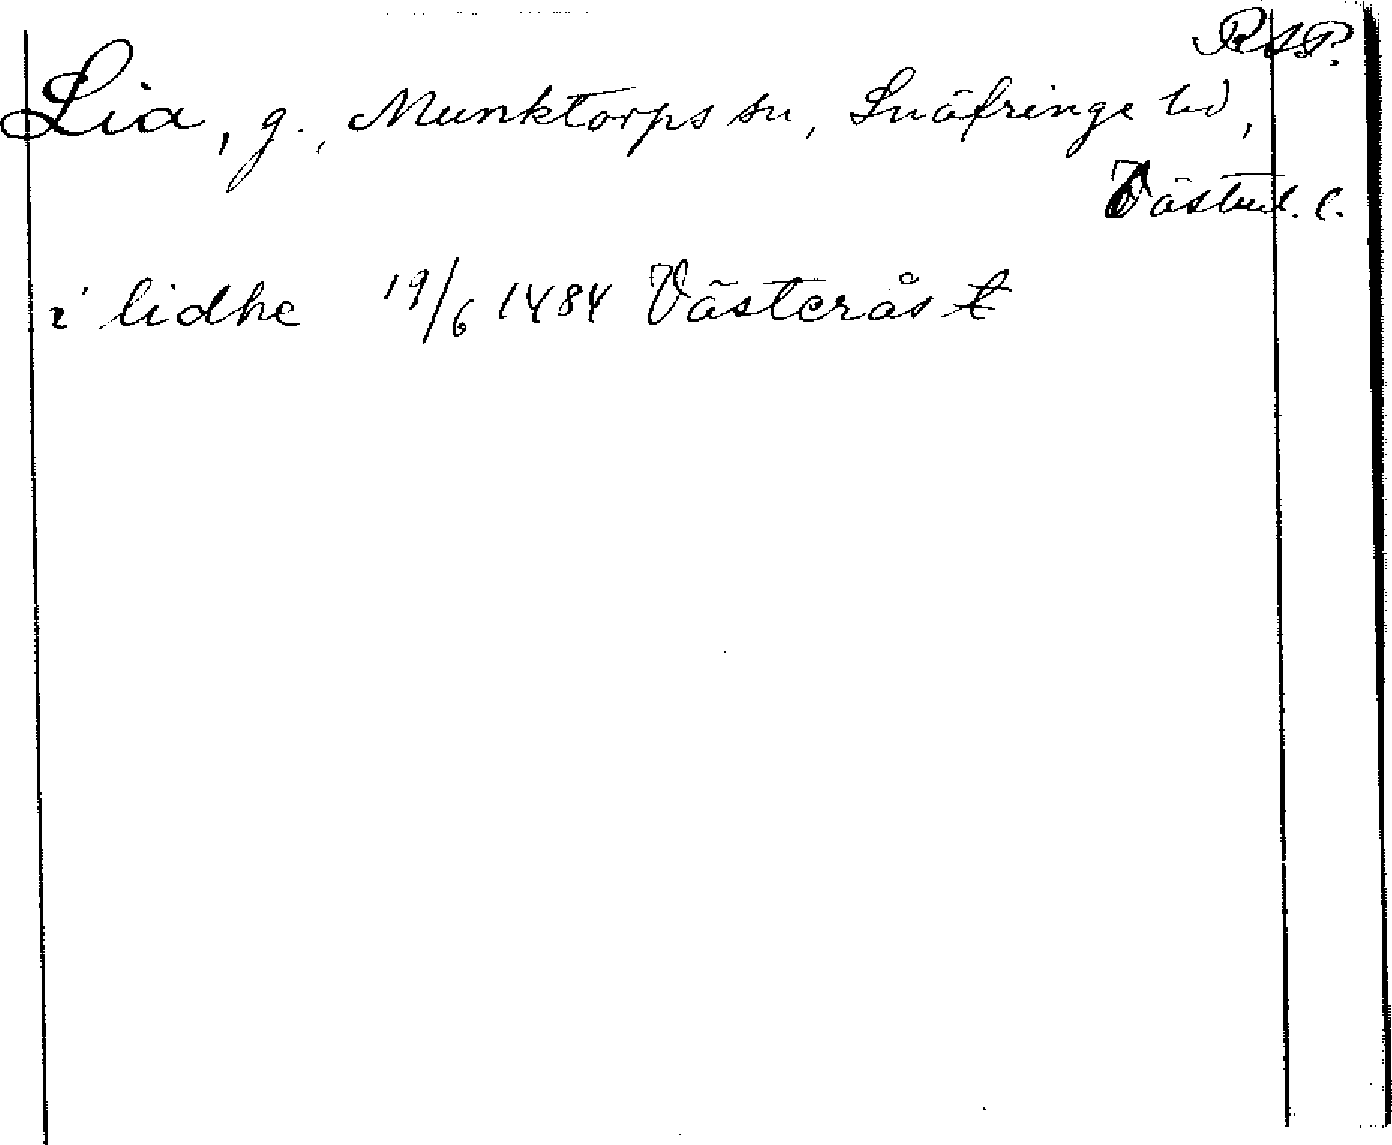 RAP.
Lia, g., Munktorps sn, Snäfringe hd,
Västml. l.
i lidhe 19/6 1484 Västerås t